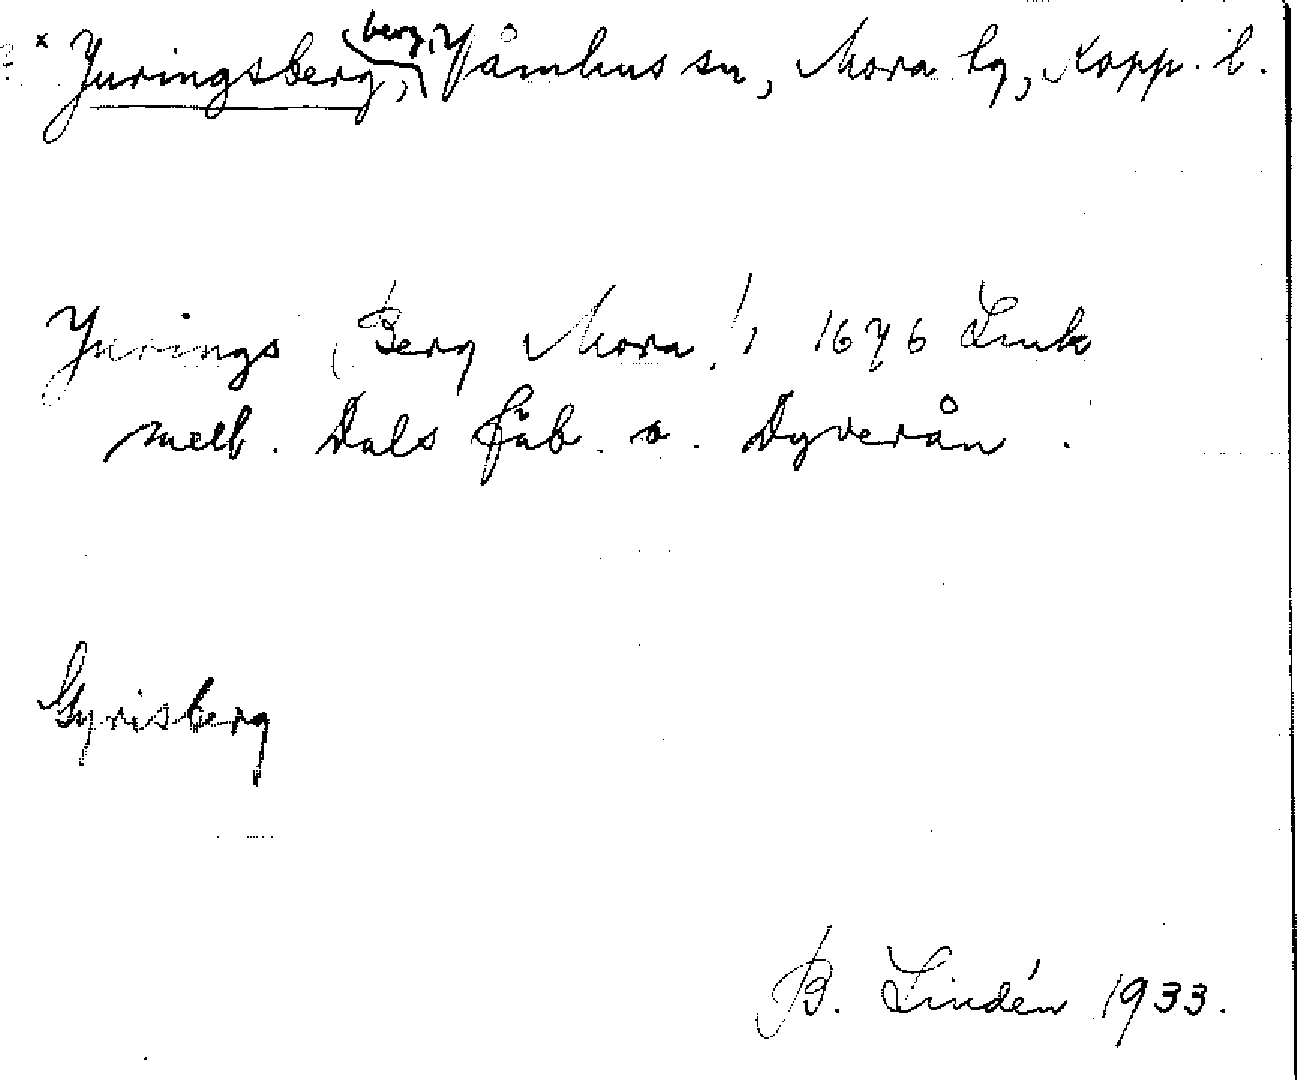 * Juringsberg, berg, Våmhus sn, Mora tg, Kopp. l.
Jurings (Berg Mora!, 1676 Link
mell. Dals fäb. o. Dyverån.
Gyrisberg
B. Lindén 1933.